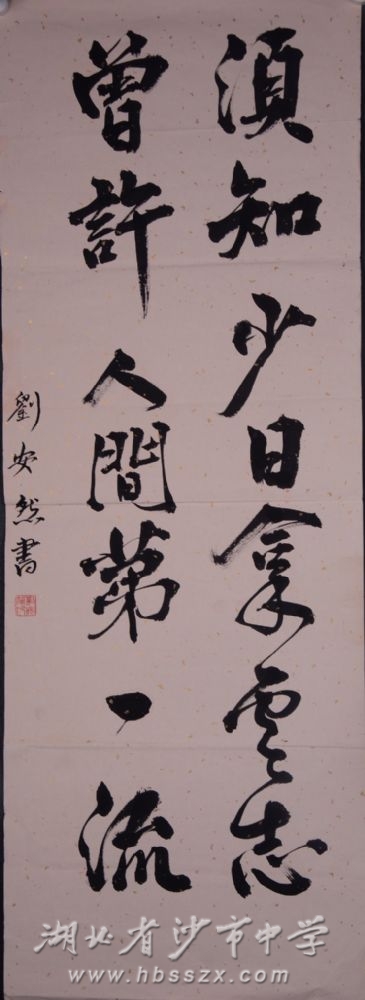 須知少日拿雲志
曾許人間第一流
劉安然書
湖北省沙市中学
www.hbsszx.com